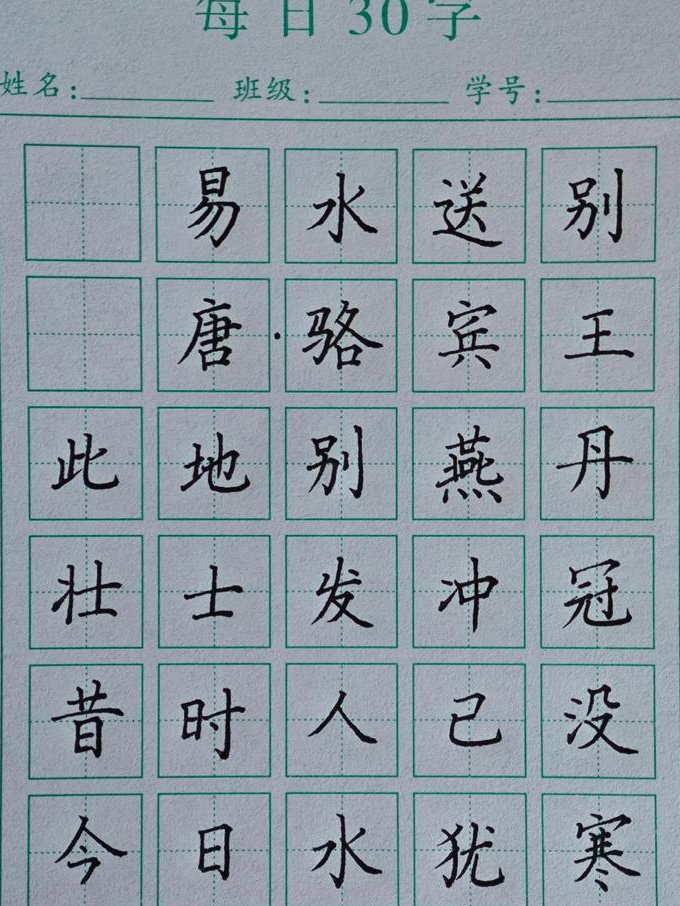 每日30字
姓名: 班级: 学号:
易水送别
唐·骆宾王
此地别燕丹
壮士发冲冠
昔时人已没
今日水犹寒